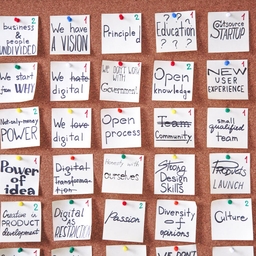 2
business &
people
UNDIVIDED
1
We have
A VISION
2
Principled
1
Education
? ? ?
?
1
Outsource
STARTUP
1
We start
from WHY
1
We hate
digital
We don't work
with
Government
2
Open
knowledge
NEW
USER
EXPERIENCE
2
Not-only-money
POWER
1
We love
digital
2
Open
process
Team
Community
1
small
qualified
team
1
Power of
idea
1
Digital
Transforma-
tion
with
ourselves
1
Strong
Design
Skills
1
LAUNCH
2
Creative in
PRODUCT
development
1
Digital
AS
2
Passion
2
Diversity
of
opinions
2
Culture
WE DON'T